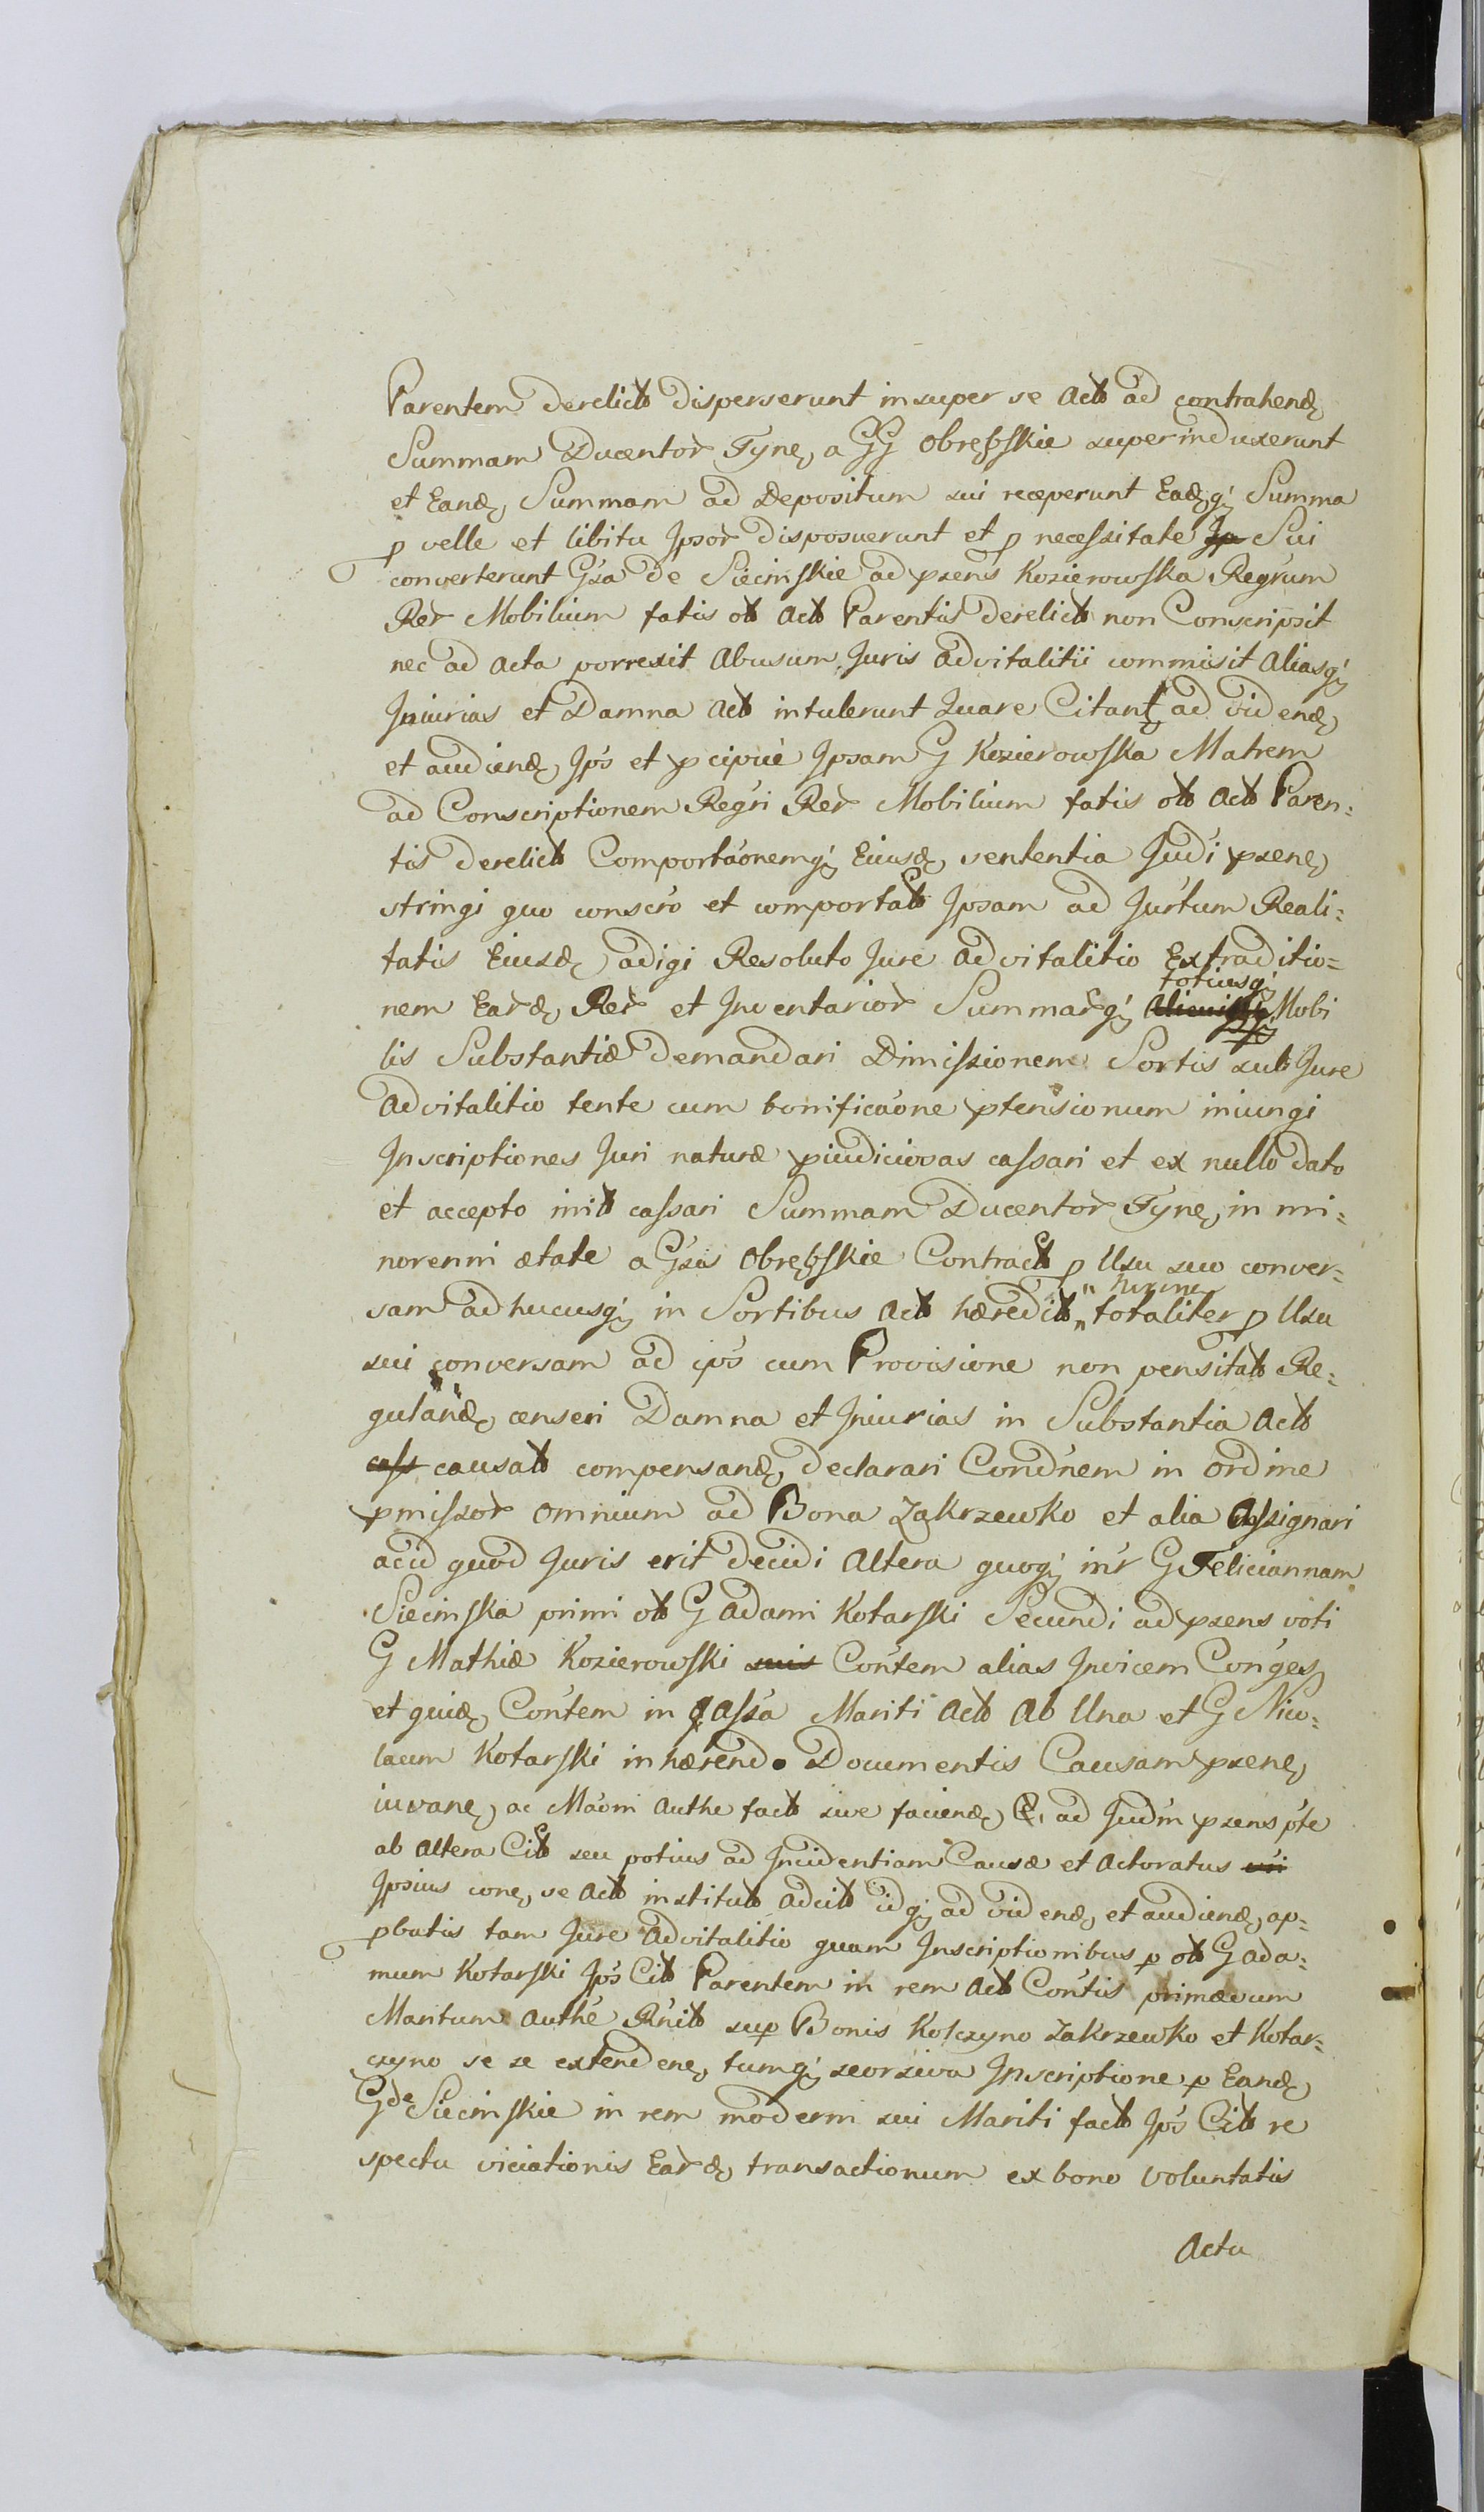 Parentem derelict disperserunt insuper se Act ad contrahend
Summam Ducentor Tyne, a GG Obrębskie superinduxerunt
et Eand, Summam ad Depositum sui receperunt Eadq Summa
p velle et libitu Ipsor disposuerunt et p necessitate Ip Sui
converterunt Gsa de Siecinskie ad psens Kozierowska Regrum
Rer Mobilium fatis ol Act Parentis derelict non Conscripsit
nec ad Acta porrexit Abusum Juris advitalitii commisit Aliasq
Iniurias et Damna Act intulerunt Quare Citant ad vidend,
et audiend, Ips et pcipue Ipsam G Kozierowska Matrem
ad Conscriptionem Regri Rer Mobilium fatis ol Act Paren=
tis derelict Comportaonemq Eiusd, sententia Judi psens,
stringi quo conscro et comportat Ipsam ad Jurtum Reali=
tatis Eiusd, adigi Resoluto Jure advitalitio Extraditio=
nem Eard, Rer et Inventarior Summarq totiusq Mobi
lis Substantiæ demandari Dimissionem Sortis sub Jure
Advitalitio tente cum bonificaone ptensionum iniungi
Inscriptiones Juri naturæ piudiciosas cassari et ex nullo dato
et accepto init cassari Summam Ducentor Tyne, in mi=
norenni ætate a Gsis Obrębskie Contract p Usu suo conver=
sam adhucusq in Sortibus Act hæredit totaliter p Usu
sui conversam ad ips cum Provisione non pensitat Re=
guland, censeri Damna et Iniurias in Substantia Act
cass causat compensand, declarari Condnem in ordine
pmissor omnium ad Bona Zakrzewko et alia Assignari
acid quod Juris erit decidi Altera quoq intr G Feliciannam
Siecinska primi ol G Adami Kotarski Secundi ad psens voti
G Mathiæ Kozierowski suis Contem alias Invicem Conges
et quid, Contem in Assa Mariti Act Ab Una et G Nico=
laum Kotarski inhærendo Documentis Causam psene,
iuvane, ac Maoni Authe fact sive faciend, & ad Judm psens pte
ab Altera Cit seu potius ad Incidentiam Causæ et Actoratus
Ipsius cone, se Act institut adcit idq ad vidend, et audiend, ap=
pbatis tam Jure Advitalitio quam Inscriptionibus p ol G Ada=
mum Kotarski Ips Cit Parentem in rem Act Contis primævum
Maritum Authe Rnit sup Bonis Kotczyno Zakrzewko et Kotar=
czyno se se extendene, tumq seorsiva Inscriptione p Eand,
Gde Siecinskie in rem moderni sui Mariti fact Ips Cit re
spectu viciationis Eard, transactionum ex bono Voluntatis
Actu